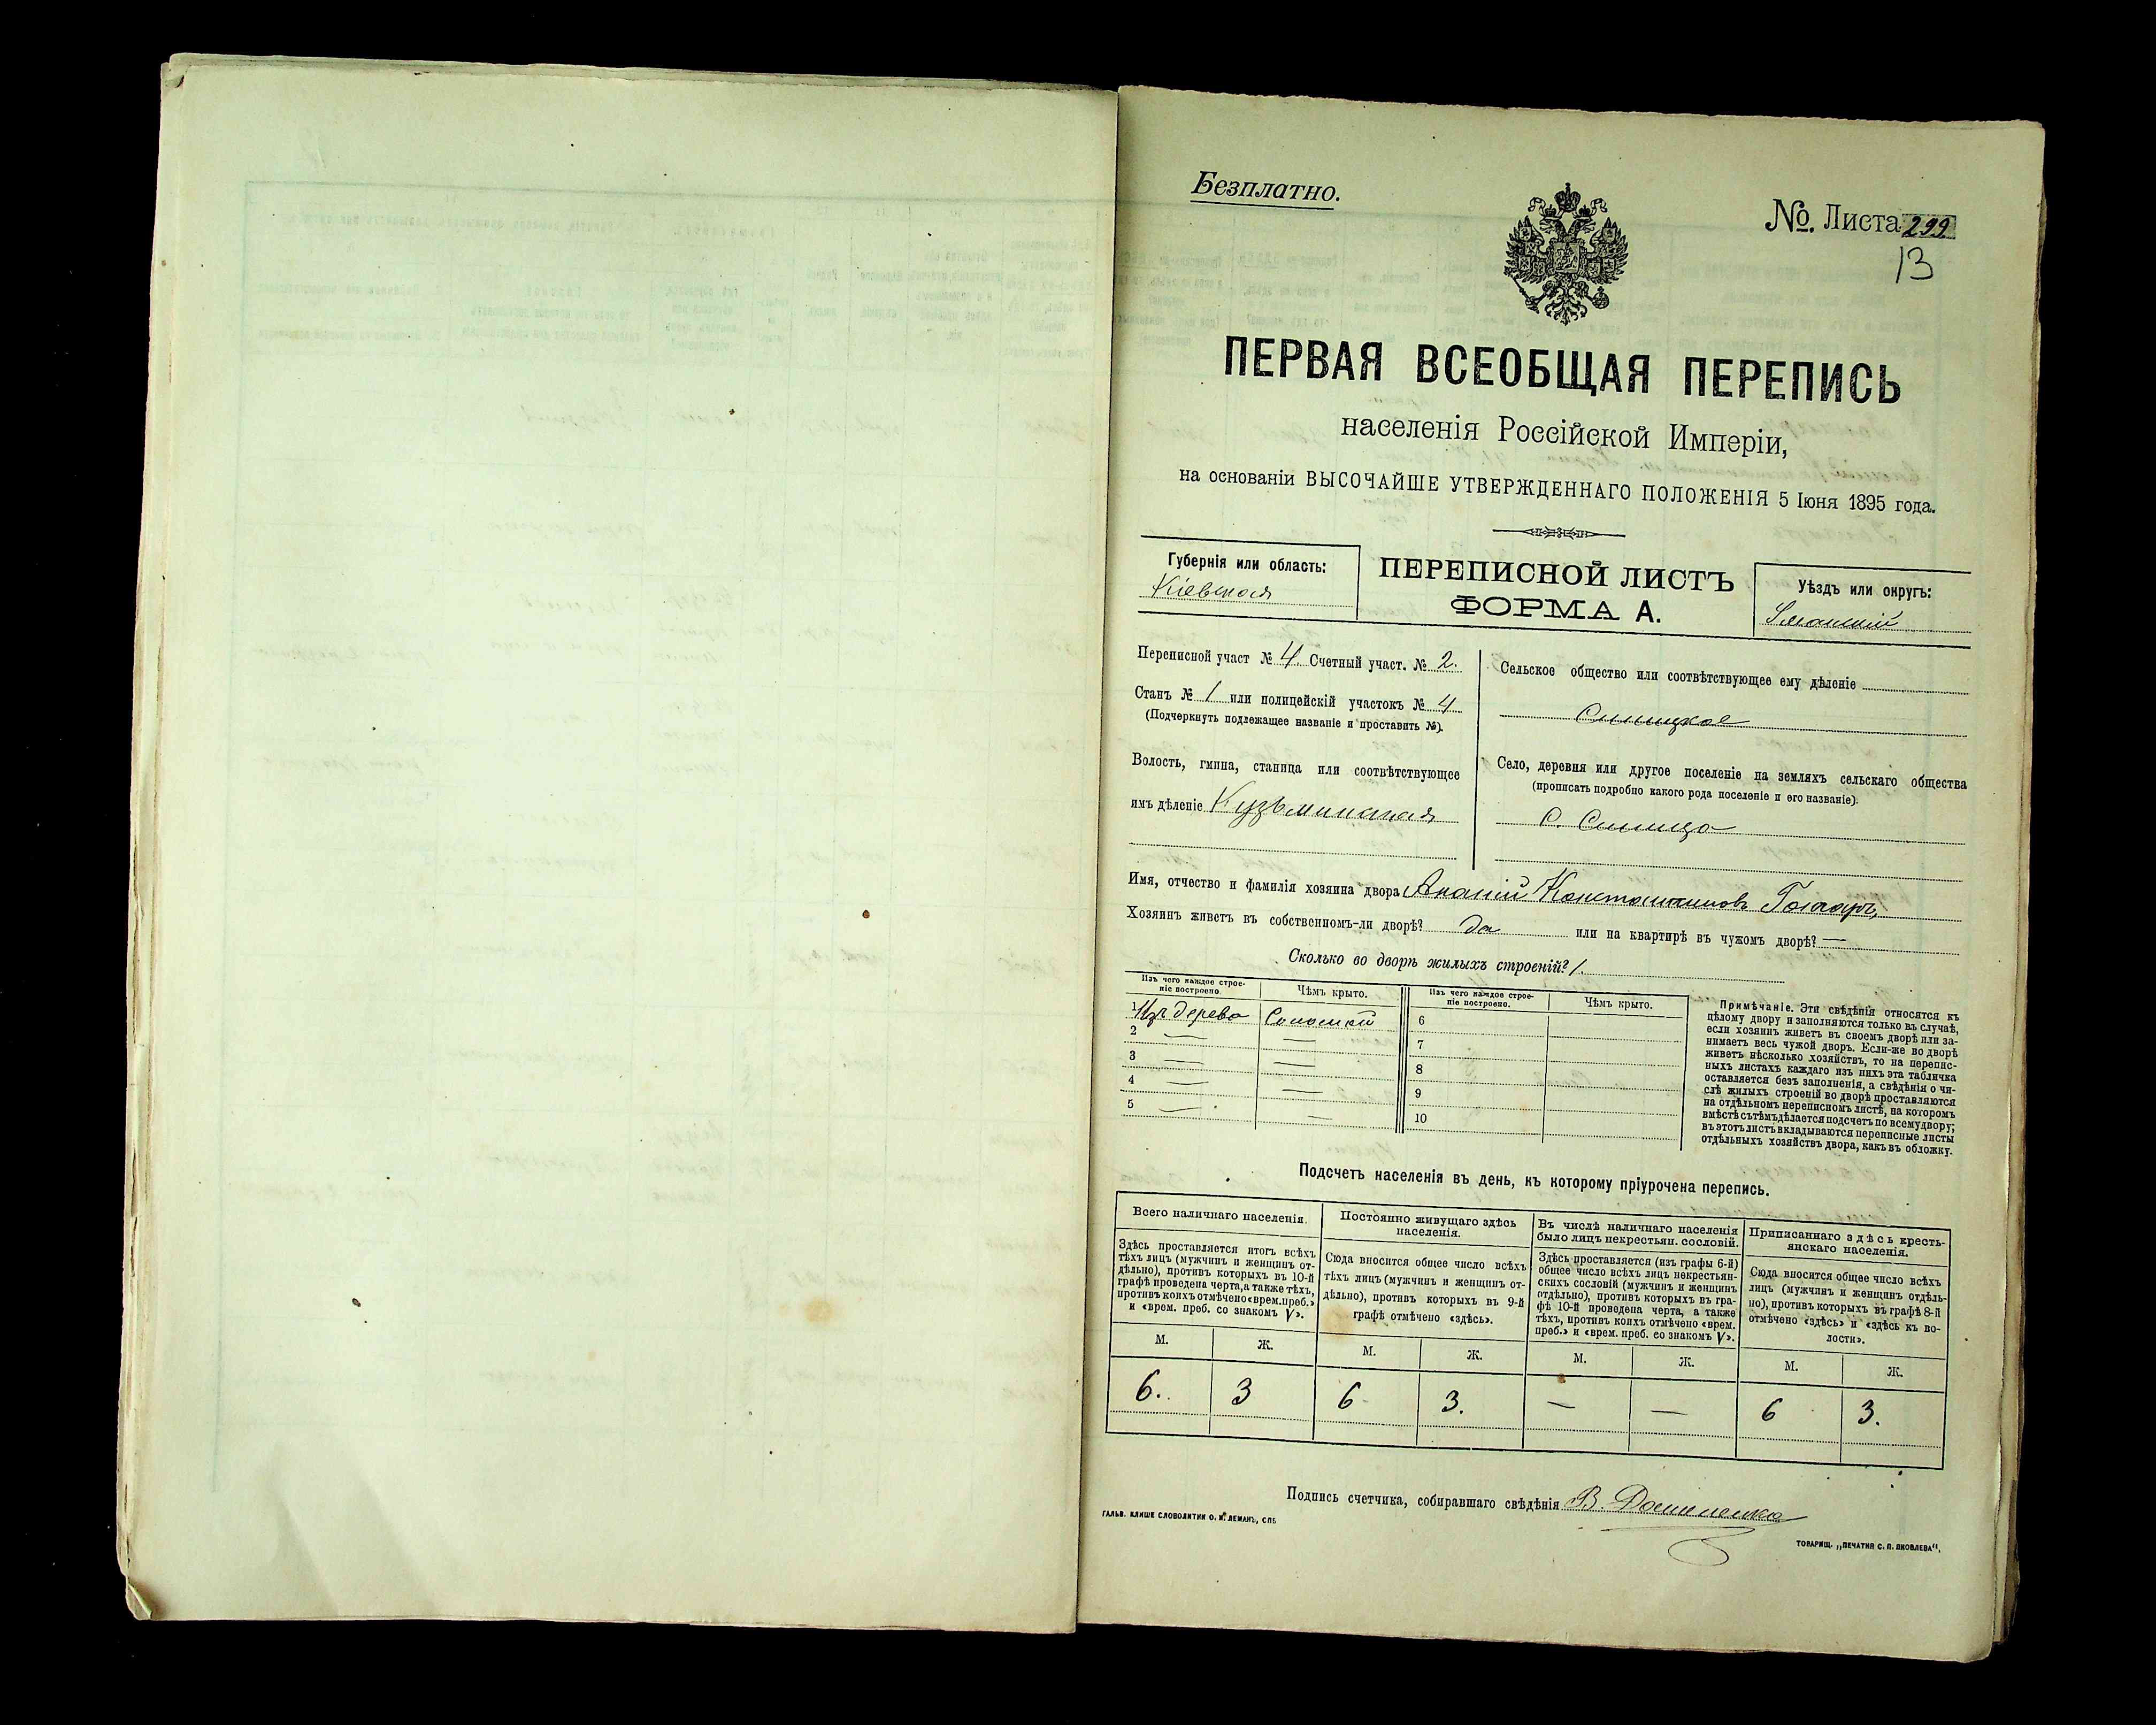 Безплатно.
№. Листа 299
13
ПЕРВАЯ ВСЕОБЩАЯ ПЕРЕПИСЬ
населенія Россійской Имперіи,
на основаніи ВЫСОЧАЙШЕ УТВЕРЖДЕННАГО ПОЛОЖЕНІЯ 5 Іюня 1895 года.
Губернія или область:
Кіевская
ПЕРЕПИСНОЙ ЛИСТЪ
ФОРМА А.
Уѣздъ или округъ:
Уманскій
Переписной участ № 4. Счетный участ. № 2.
Станъ № 1 или полицейскій участокъ № 4
(Подчеркнуть подлежащее названіе и проставить №).
Волость, гмина, станица или соотвѣтствующее
имъ дѣленіе Кузьминская
Сельское общество или соотвѣтствующее ему дѣленіе
Синицкое
Село, деревня или другое поселеніе на земляхъ сельскаго общества
(прописать подробно какого рода поселеніе и его названіе).
С. Синица
Имя, отчество и фамилія хозяина двора Ананій Константиновъ Гончаръ,
Хозяинъ живетъ въ собственномъ-ли дворѣ? да или на квартирѣ въ чужомъ дворѣ? —
Сколько во дворѣ жилыхъ строеній? 1.
Изъ чего каждое строе-
ніе построено.
Чѣмъ крыто.
Изъ чего каждое строе-
ніе построено.
Чѣмъ крыто.
1 Изъ дерева Соломой 6
2 — — 7
3 — — 8
4 — — 9
5 — — 10
Примѣчаніе. Эти свѣдѣнія относятся къ
цѣлому двору и заполняются только въ случаѣ,
если хозяинъ живетъ въ своемъ дворѣ или за-
нимаетъ весь чужой дворъ. Если-же во дворѣ
живетъ нѣсколько хозяйствъ, то на перепис-
ныхъ листахъ каждаго изъ нихъ эта табличка
оставляется безъ заполненія, а свѣдѣнія о чи-
слѣ жилыхъ строеній во дворѣ проставляются
на отдѣльномъ переписномъ листѣ, на которомъ
вмѣстѣ съ тѣмъ дѣлается подсчетъ по всему двору;
въ этотъ листъ вкладываются переписные листы
отдѣльныхъ хозяйствъ двора, какъ въ обложку.
Подсчетъ населенія въ день, къ которому пріурочена перепись.
Всего наличнаго населенія.
Здѣсь проставляется итогъ всѣхъ
тѣхъ лицъ (мужчинъ и женщинъ от-
дѣльно), противъ которыхъ въ 10-й
графѣ проведена черта, а также тѣхъ,
противъ коихъ отмѣчено «врем. преб.»
и «врем. преб. со знакомъ V».
Постоянно живущаго здѣсь
населенія.
Сюда вносится общее число всѣхъ
тѣхъ лицъ (мужчинъ и женщинъ от-
дѣльно), противъ которыхъ въ 9-й
графѣ отмѣчено «здѣсь».
Въ числѣ наличнаго населенія
было лицъ некрестьян. сословій.
Здѣсь проставляется (изъ графы 6-й)
общее число всѣхъ лицъ некрестьян-
скихъ сословій (мужчинъ и женщинъ
отдѣльно), противъ которыхъ въ гра-
фѣ 10-й проведена черта, а также
тѣхъ, противъ коихъ отмѣчено «врем.
преб.» и «врем. преб. со знакомъ V».
Приписаннаго здѣсь кресть-
янскаго населенія.
Сюда вносится общее число всѣхъ
лицъ (мужчинъ и женщинъ отдѣль-
но), противъ которыхъ въ графѣ 8-й
отмѣчено «здѣсь» и «здѣсь къ во-
лости».
М. Ж. М. Ж. М. Ж. М. Ж.
6. 3 6 3. — — 6 3.
Подпись счетчика, собиравшаго свѣдѣнія В.
ГАЛЬВ. КЛИШЕ СЛОВОЛИТНИ О. И. ЛЕМАНЪ, СПБ
ТОВАРИЩ. „ПЕЧАТНЯ С. П. ЯКОВЛЕВА".